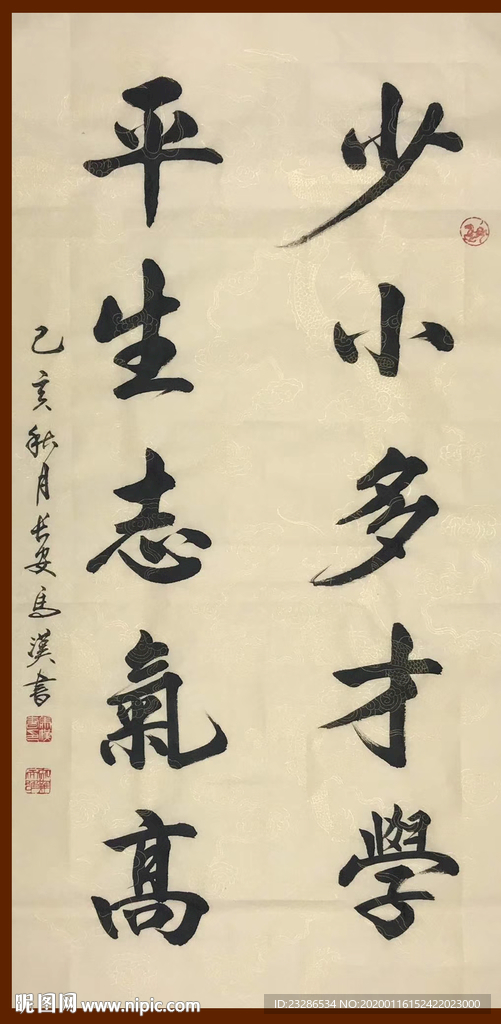 少小多才學
平生志氣高
己亥秋月長安馬漢書
昵图网 www.nipic.com
ID:23286534 NO:20200116152422023000